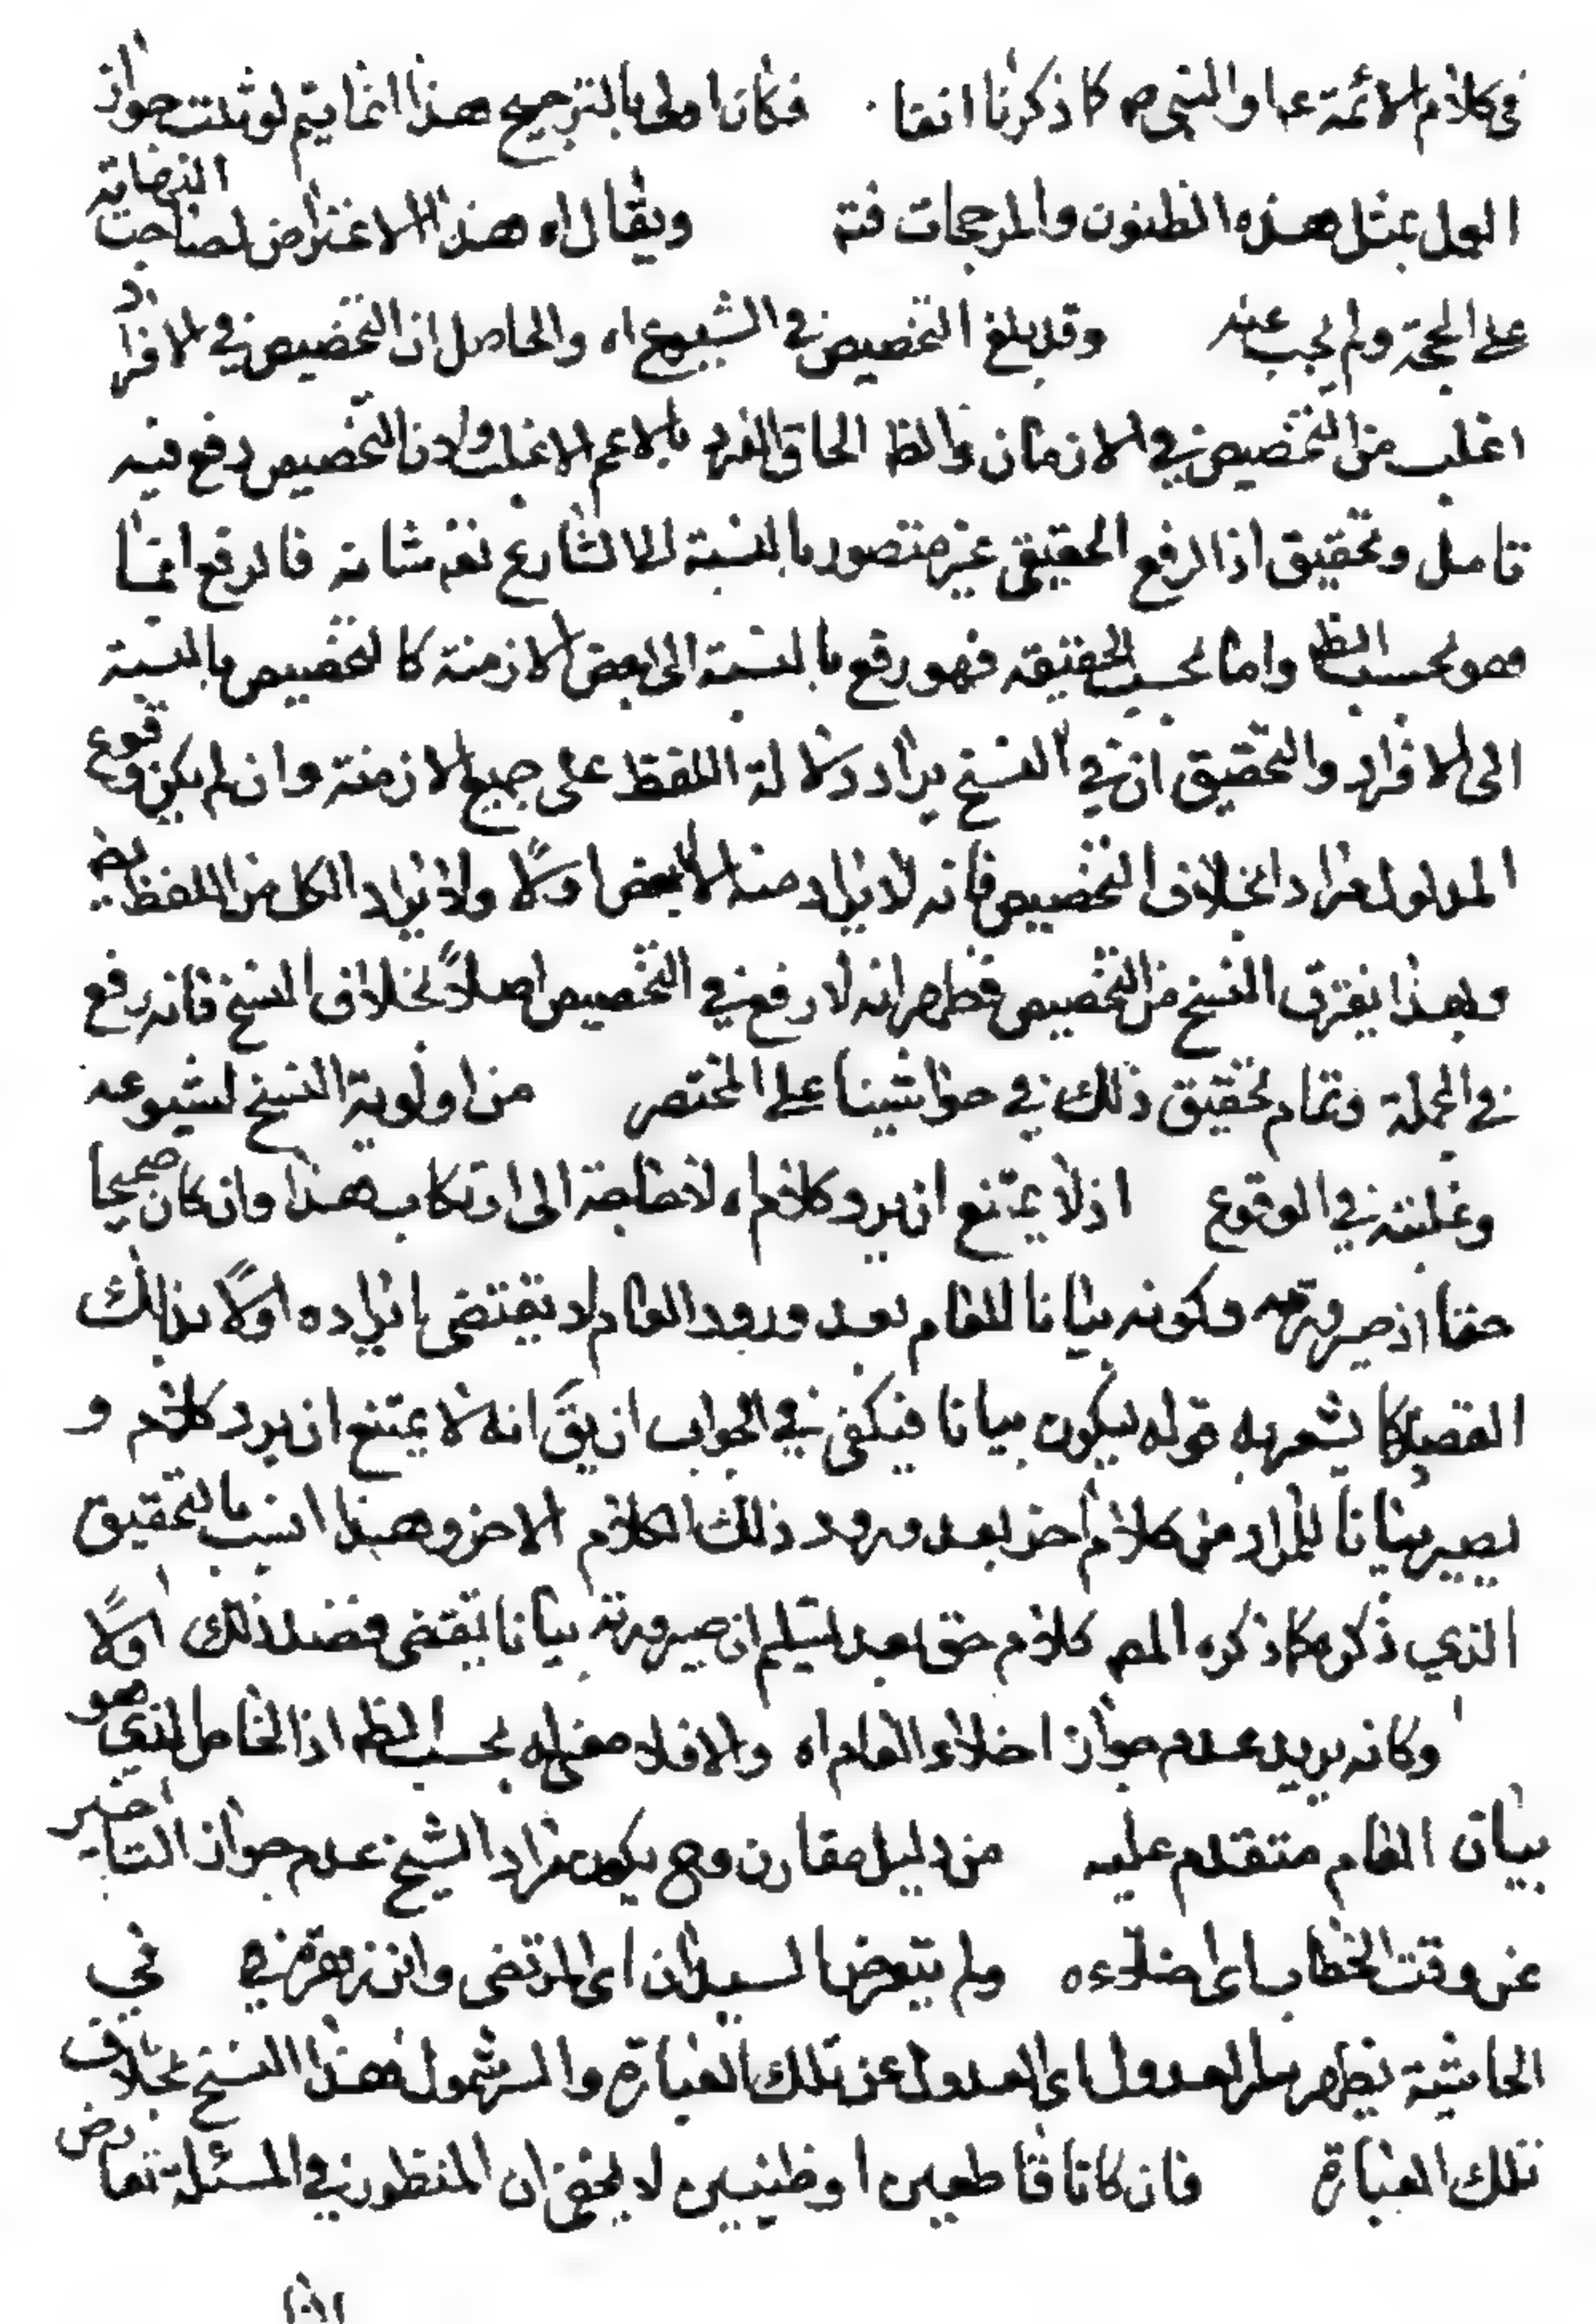 في كلام الأئمة عا والنبي ص كما ذكرنا انفا فكان اولى بالترجيح هذا انما يتم لو ثبت جواز
العمل بمثل هذه الظنون والمرجحات فتم ويقال اه هذا الاعتراض لصاحب النهاية
على الحجة ولم يجب عنه وقد بلغ التخصيص في الشيوع اه والحاصل ان التخصيص في الافراد
اغلب من التخصيص في الازمان والظ الحاق الفرد بالاعم الاغلب ولان التخصيص دفع فيه
تامل وتحقيق اذ الرفع الحقيقي غير متصور بالنسبة الى الشارع تعه شانه فالرفع انما
هو بحسب الظ واما بحسب الحقيقة فهو رفع بالنسبة الى بعض الازمنة كالتخصيص بالنسبة
الى الافراد والتحقيق ان في النسخ يراد دلالة اللفظ على جميع الازمنة وان لم يكن وقوع
المدلول مرادا بخلاف التخصيص فانه لا يراد منه الا البعض اولا ولا يراد الكل من اللفظ
وبهذا يفترق النسخ من التخصيص فظهر انه لا رفع في التخصيص اصلاً بخلاف النسخ فانه رفع
في الجملة وتمام تحقيق ذلك في حواشينا على المختصر من اولوية النسخ لشيوعه
وغلبته في الوقوع اذ لا يمتنع ان يرد كلام اه لا حاجة الى ارتكاب هذا وان كان صحيحا
حقا اذ صيرورته وكونه بيانا للعام بعد ورود العام لا يقتضي ايراده اولاً بذلك
القصد كما يشعر به قوله ليكون بيانا فيكفي في الجواب ان يق انه لا يمتنع ان يرد كلام و
يصير بيانا للمراد من كلام اخر بعد ورود ذلك الكلام الاخر وهذا انسب بالتحقيق
الذي ذكره كما ذكره المص كلام حق بعد تسليم ان صيرورته بيانا يقتضي قصد ذلك اولاً
وكانه يريد عدم جواز اخلاء العام اه والا فلا معنى له بحسب الظ اذ الخاص الذي هو
بيان العام متقدم عليه من دليل مقارن وح يكون مراد الشيخ عدم جواز التاخير
عن وقت الخطاب اي اخلاءه ولم يتعرض السيدان اي المرتضى وابن زهرة في
الحاشية يظهر سر العدول اي العدول عن تلك العبارة والسر شمول هذا النسخ بخلاف
تلك العبارة فان كانا قاطعين او ظنيين لا يخفى ان المنظور في المسئلة تعارض